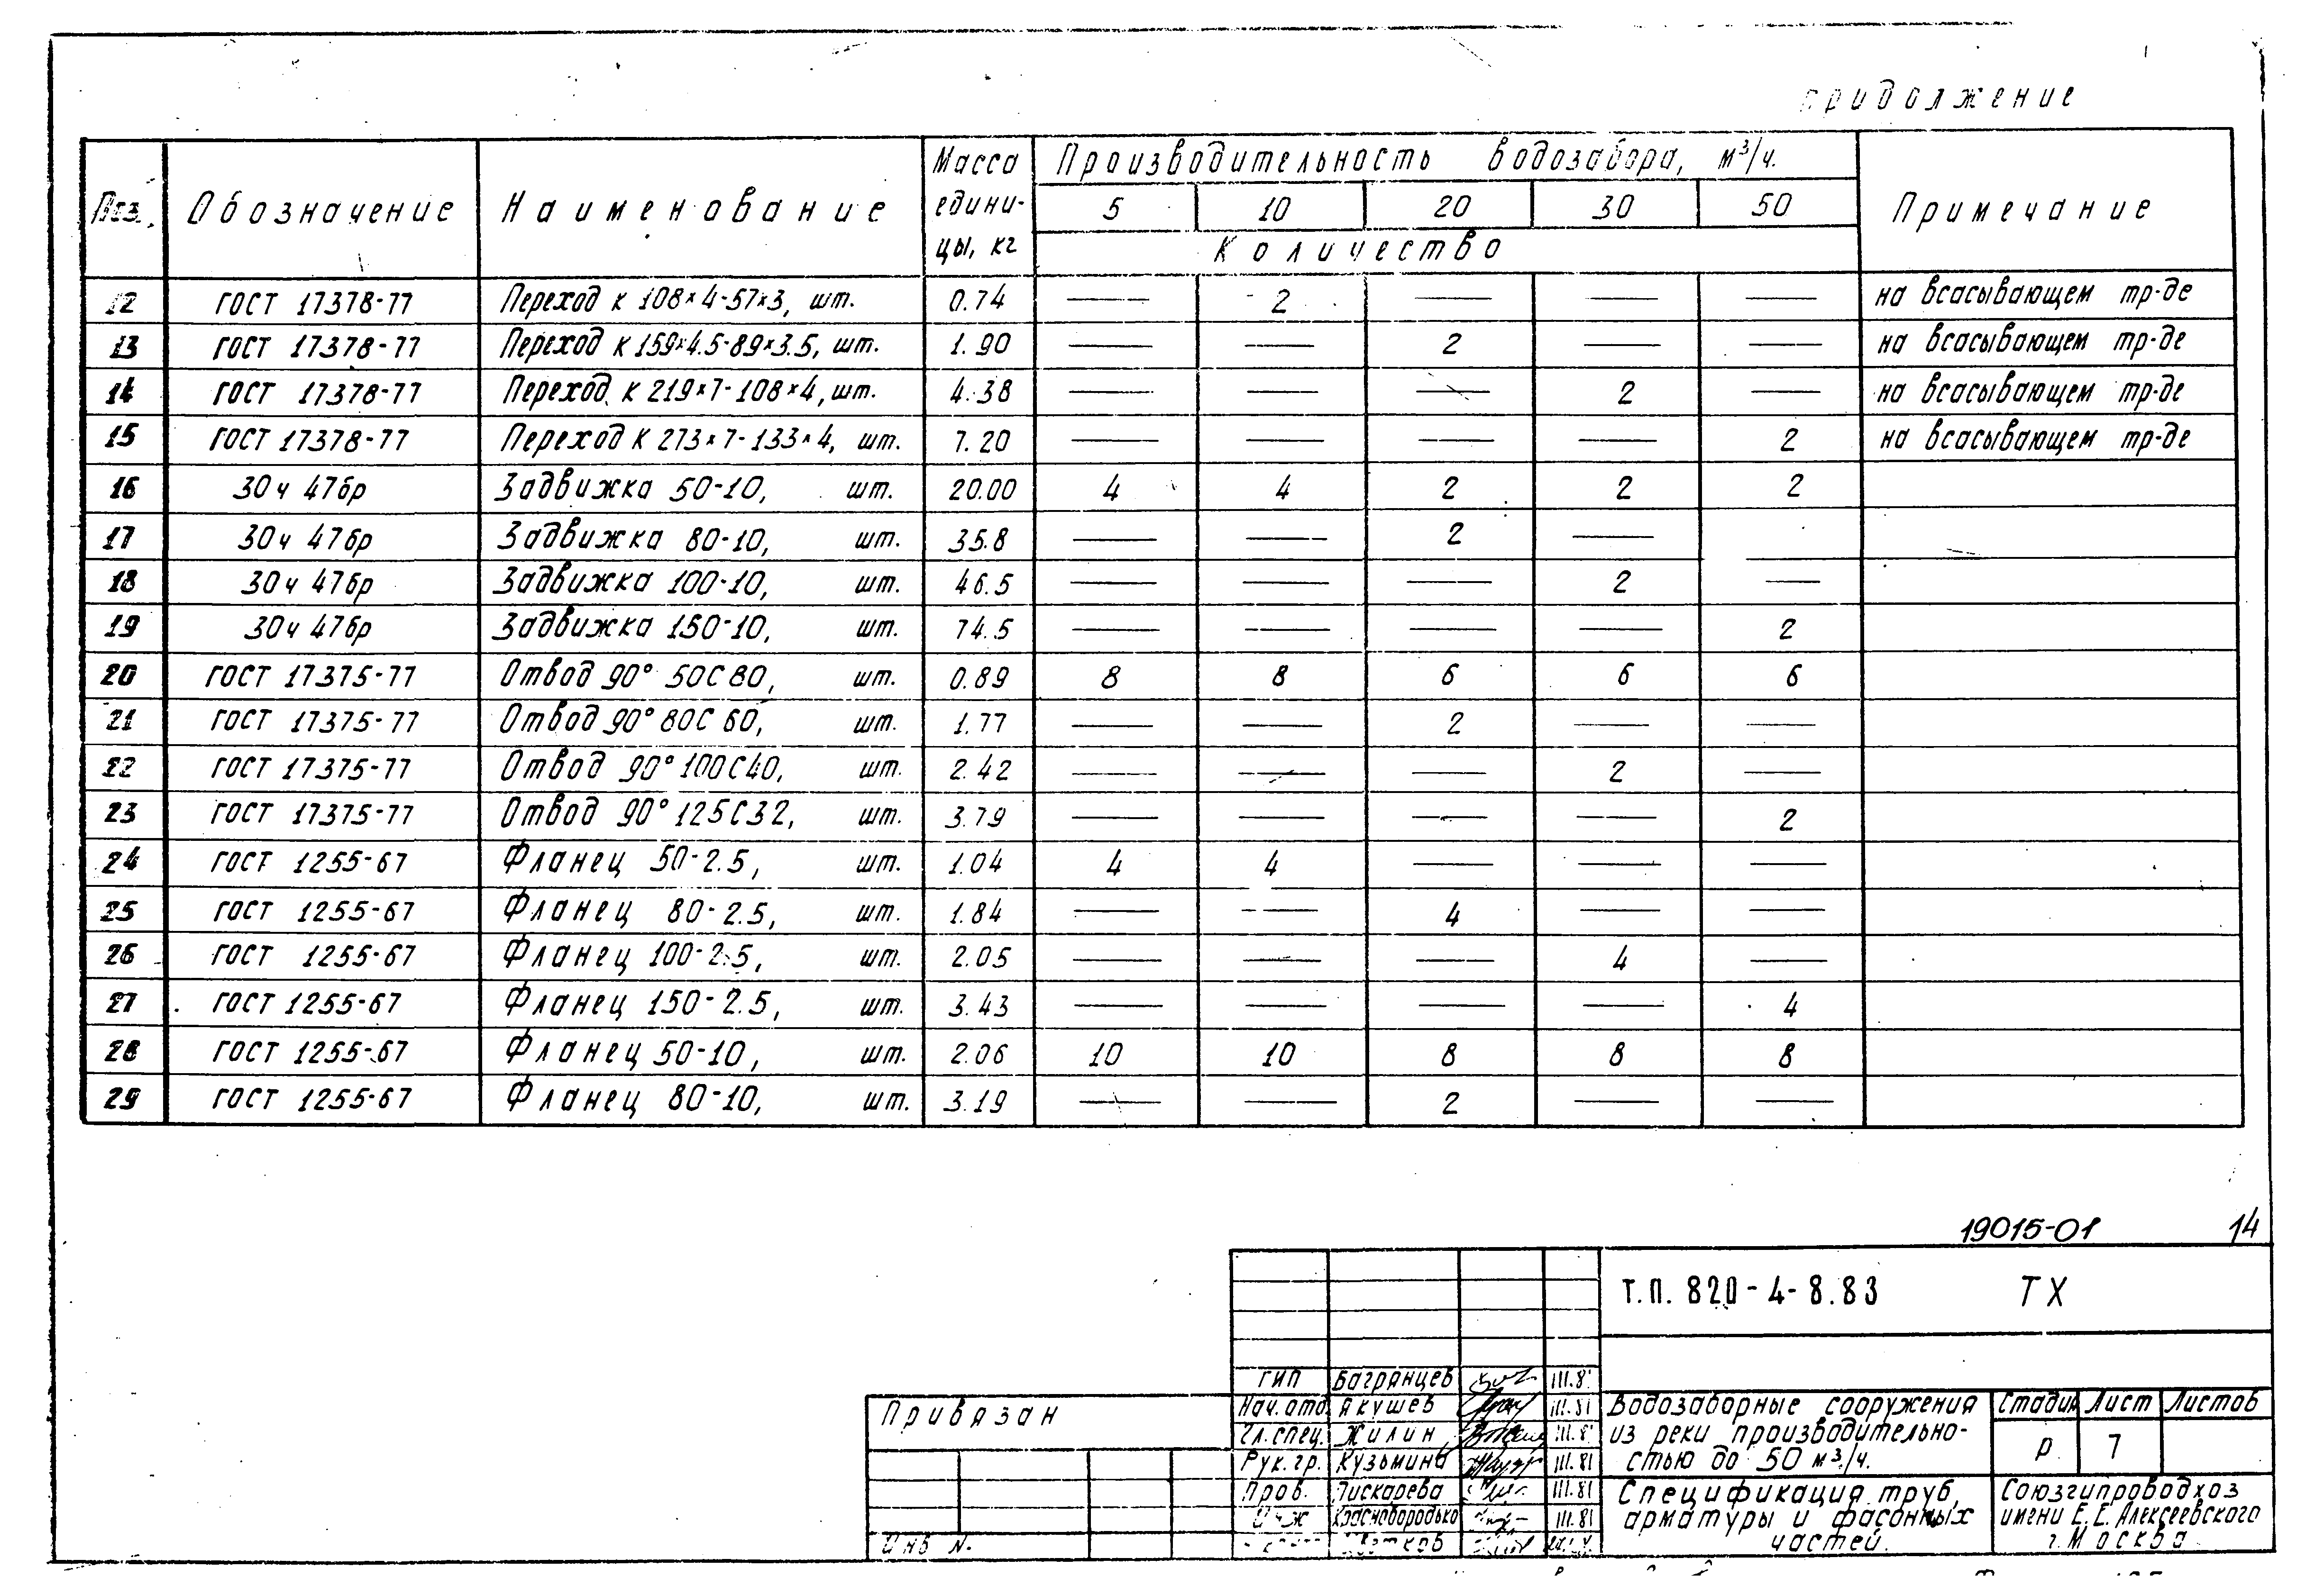 продолжение
Поз. Обозначение Наименование Масса единицы, кг Производительность водозабора, м³/ч. Примечание
5 10 20 30 50
Количество
12 ГОСТ 17378-77 Переход К 108×4-57×3, шт. 0.74 — 2 — — — на всасывающем тр-де
13 ГОСТ 17378-77 Переход К 159×4.5-89×3.5, шт. 1.90 — — 2 — — на всасывающем тр-де
14 ГОСТ 17378-77 Переход К 219×7-108×4, шт. 4.38 — — — 2 — на всасывающем тр-де
15 ГОСТ 17378-77 Переход К 273×7-133×4, шт. 7.20 — — — — 2 на всасывающем тр-де
16 30ч 47бр Задвижка 50-10, шт. 20.00 4 4 2 2 2
17 30ч 47бр Задвижка 80-10, шт. 35.8 — — 2 —
18 30ч 47бр Задвижка 100-10, шт. 46.5 — — — 2 —
19 30ч 47бр Задвижка 150-10, шт. 74.5 — — — — 2
20 ГОСТ 17375-77 Отвод 90° 50С80, шт. 0.89 8 8 6 6 6
21 ГОСТ 17375-77 Отвод 90° 80С60, шт. 1.77 — — 2 — —
22 ГОСТ 17375-77 Отвод 90° 100С40, шт. 2.42 — — — 2 —
23 ГОСТ 17375-77 Отвод 90° 125С32, шт. 3.79 — — — — 2
24 ГОСТ 1255-67 Фланец 50-2.5, шт. 1.04 4 4 — — —
25 ГОСТ 1255-67 Фланец 80-2.5, шт. 1.84 — — 4 — —
26 ГОСТ 1255-67 Фланец 100-2.5, шт. 2.05 — — — 4 —
27 ГОСТ 1255-67 Фланец 150-2.5, шт. 3.43 — — — — 4
28 ГОСТ 1255-67 Фланец 50-10, шт. 2.06 10 10 8 8 8
29 ГОСТ 1255-67 Фланец 80-10, шт. 3.19 — — 2 — —
19015-01 14
Т.П. 820-4-8.83 ТХ
ГИП Багрянцев III.8
Нач. отд. Якушев III.81
Гл. спец. Жилин III.8
Рук. гр. Кузьмина III.81
Пров. Пискарева III.81
Инж Краснобородько III.81
Привязан
Инв N.
Водозаборные сооружения
из реки производительно-
стью до 50 м³/ч.
Стадия Лист Листов
Р 7
Спецификация труб,
арматуры и фасонных
частей.
Союзгипроводхоз
имени Е.Е. Алексеевского
г. Москва